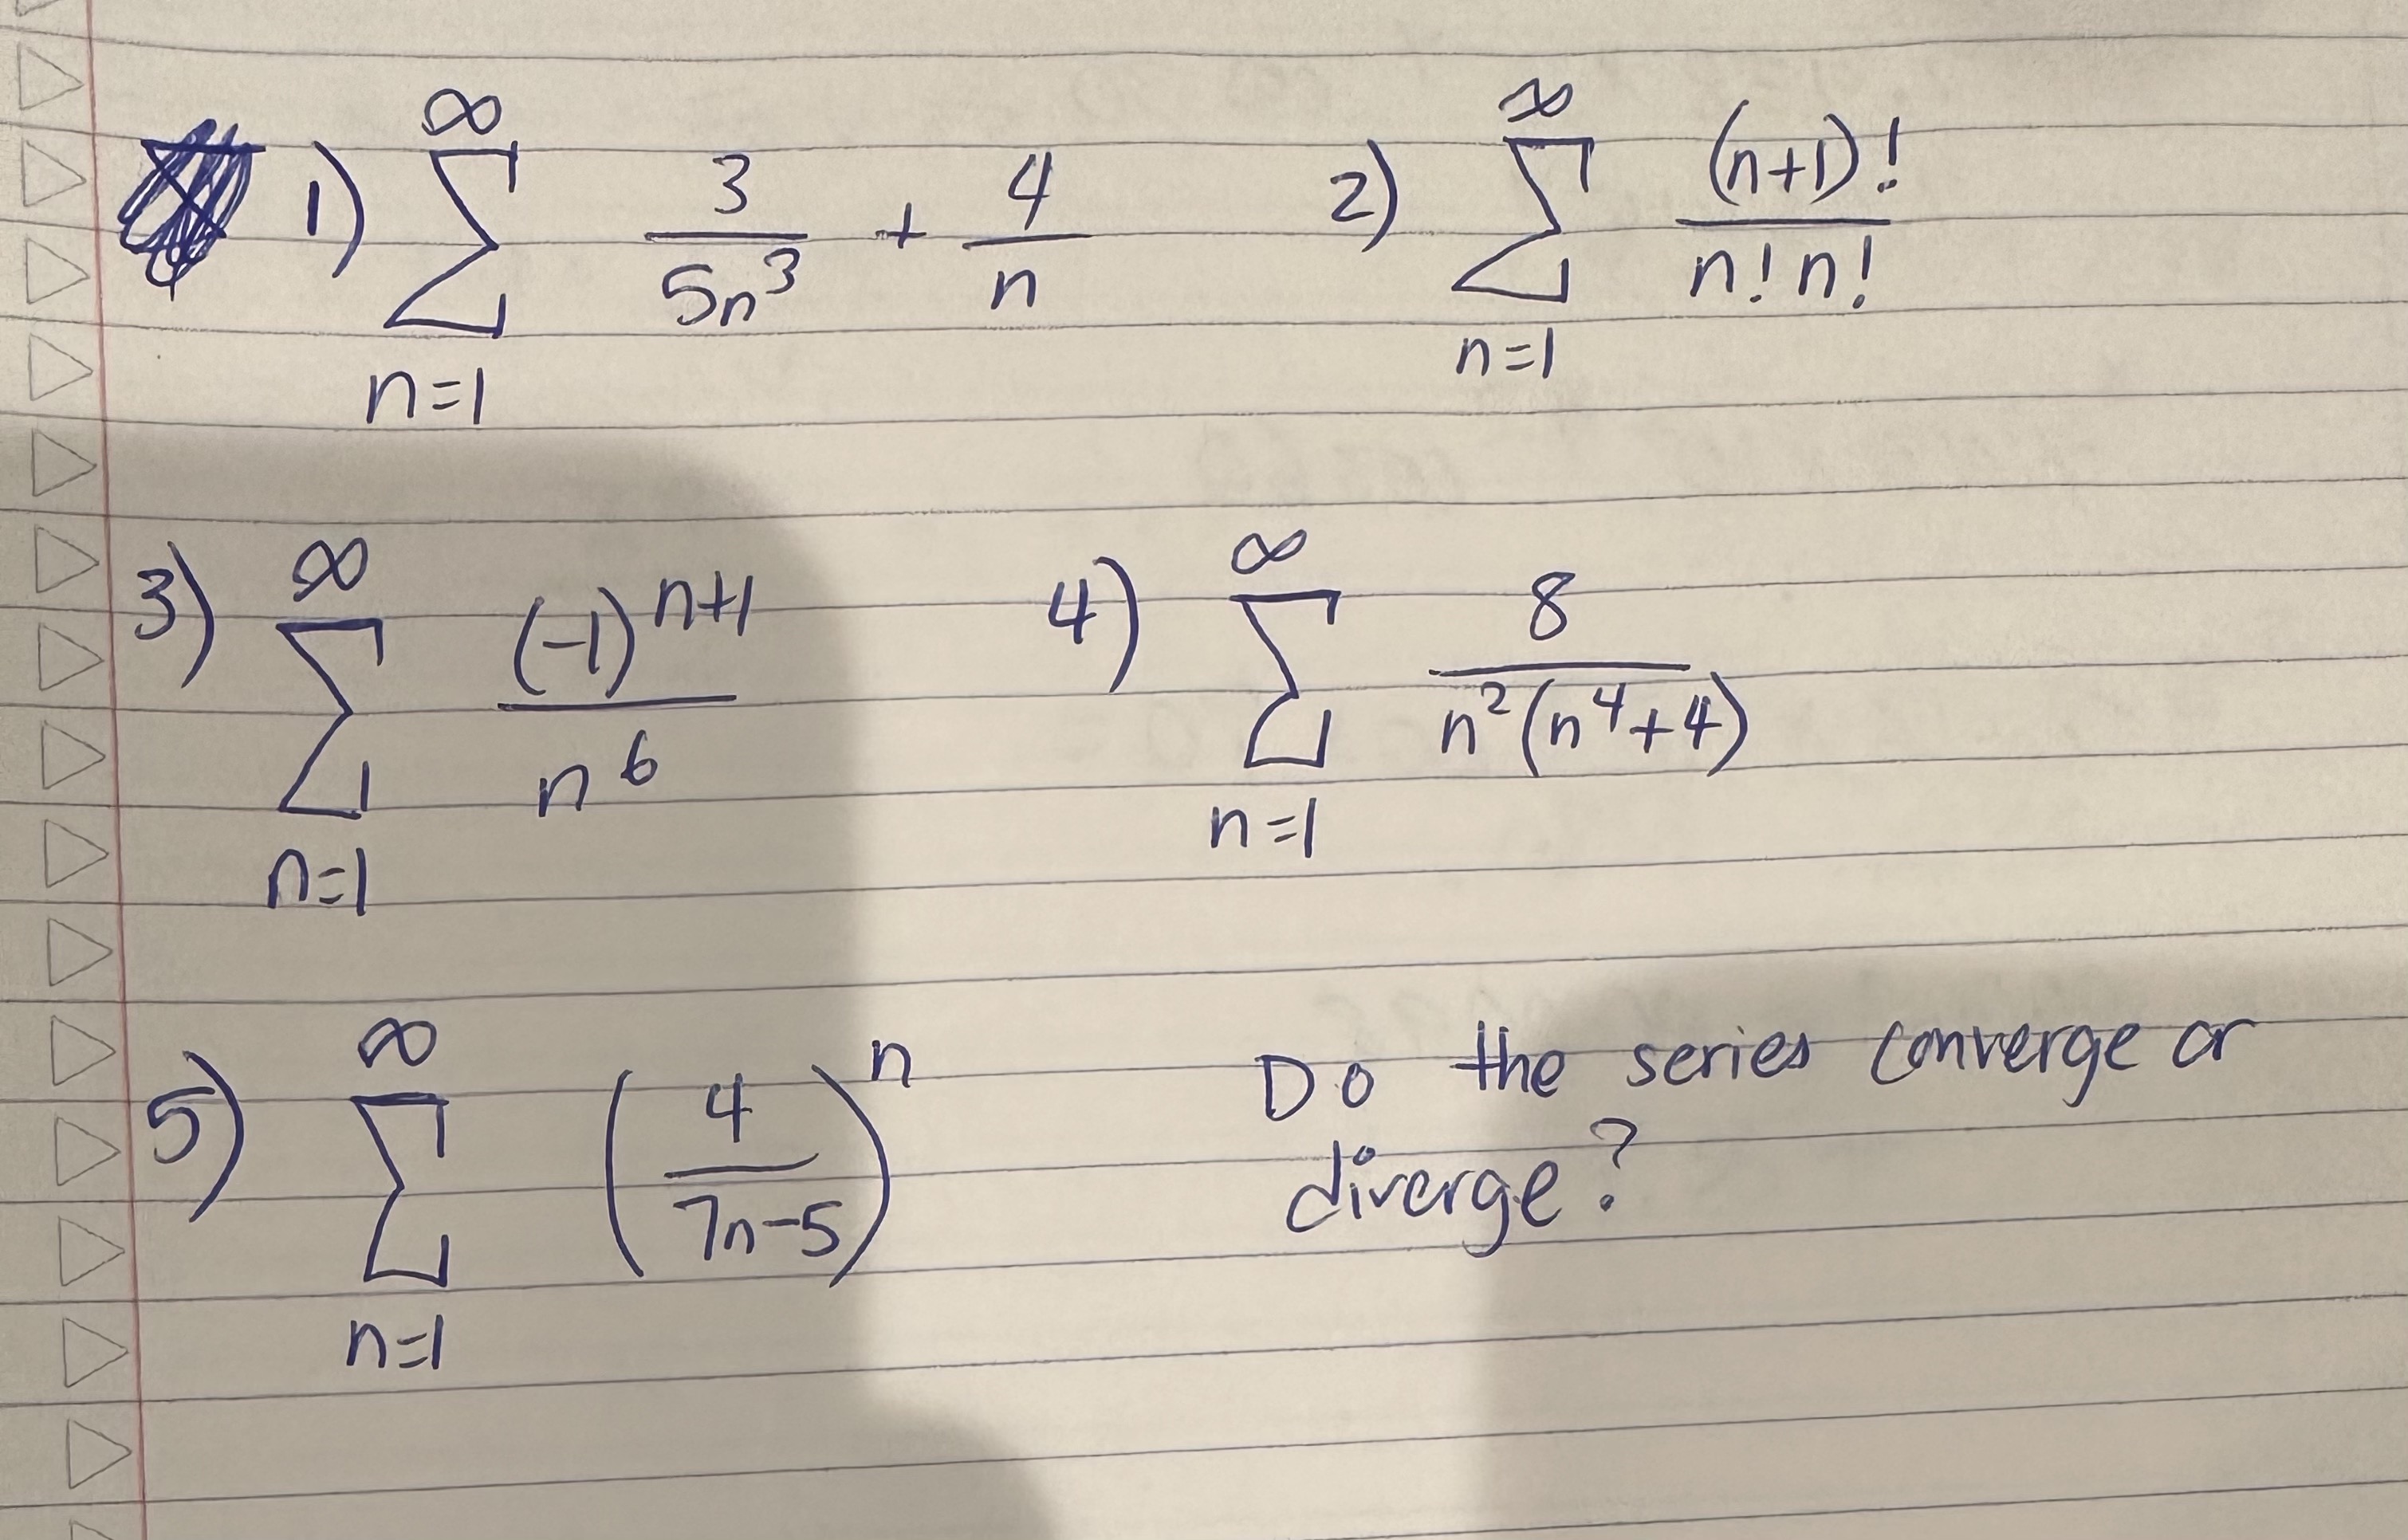 1) ∞ ∑ n=1 3/5n³ + 4/n 2) ∞ ∑ n=1 (n+1)!/n!n!
3) ∞ ∑ n=1 (-1)ⁿ⁺¹/n⁶ 4) ∞ ∑ n=1 8/n²(n⁴+4)
5) ∞ ∑ n=1 (4/7n-5)ⁿ
Do the series converge or
diverge?